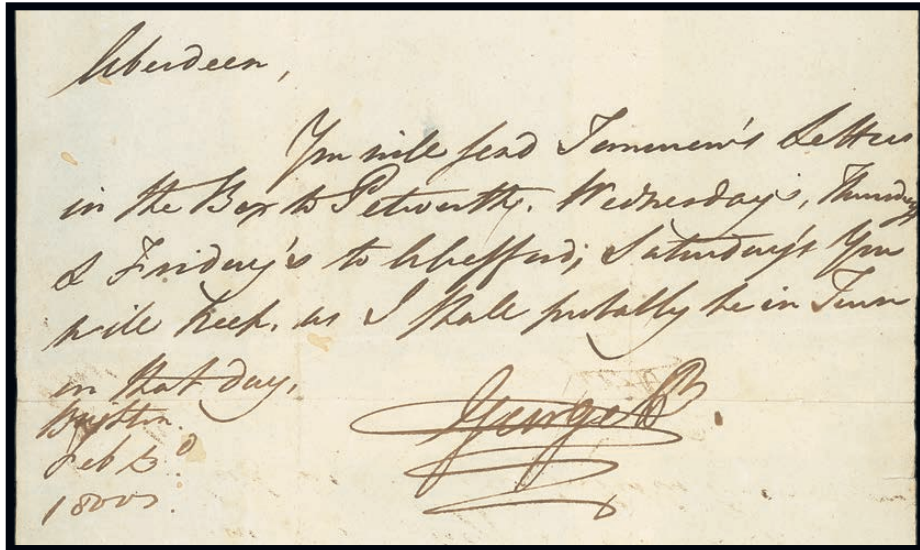 Aberdeen,
You will send Tomorrow's Letters
in the Box to Petworth. Wednesday's, Thursday's
& Friday's to ; Saturday's You
will keep, as I shall probably be in Town
on that day,
Brighton.
Feb 3d
George P.